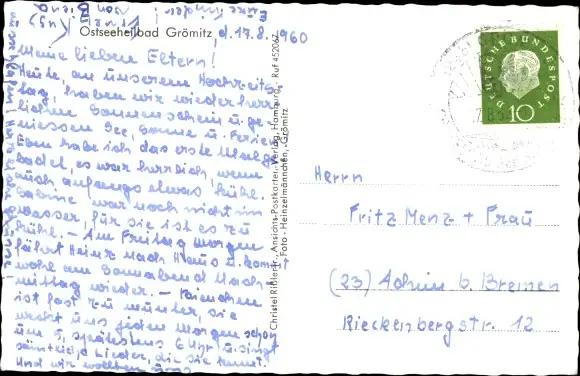 Ostseeheilbad Grömitz, d. 17.8.1960
Meine lieben Eltern!
Heute, an unserem Hochzeits-
tag, haben wir wieder herr-
lichen Sonnenschein u. ge-
niessen See, Sonne u. Ferien.
habe ich das erste Mal ge-
badet, es war herrlich, wenn
auch anfangs etwas kühl.
Sabine war noch nicht im
Wasser, für sie ist es zu
kühl. - Am Freitag morgen
fährt Heinz nach Haus u. kommt
wohl am Sonnabend Nach-
mittag wieder. -
ist fast zu munter, sie
weckt uns jeden Morgen schon
um 5, spätestens 6 Uhr u. singt
sämtliche Lieder, die sie kennt.
Und wir wollten uns
Eure Kinder
Christel Rißler jr., Ansichts-Postkarten-Verlag, Hamburg, Ruf 452067
Foto-Heinzelmännchen, Grömitz
DEUTSCHE BUNDESPOST
10
Herrn
Fritz Menz + Frau
(23) Achim b. Bremen
Rieckenbergstr. 12